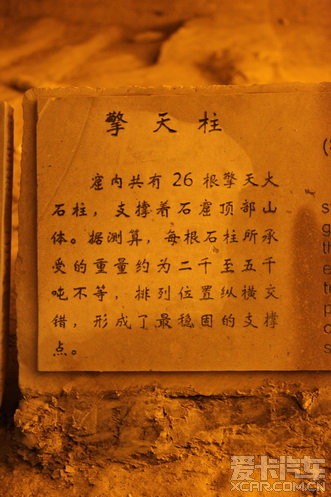 擎天柱
窟内共有26根擎天大
石柱，支撑着石窟顶部山
体。据测算，每根石柱所承
受的重量约为二千至五千
吨不等，排列位置纵横交
错，形成了最稳固的支撑
点。
爱卡汽车
XCAR.COM.CN